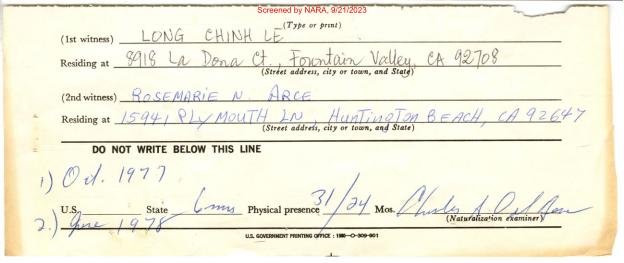 Screened by NARA, 9/21/2023
(Type or print)
(1st witness) LONG CHINH LE
Residing at 8918 La Dona Ct., Fountain Valley, CA 92708
(Street address, city or town, and State)
(2nd witness) ROSEMARIE N. ARCE
Residing at 15941 PLYMOUTH LN, HUNTINGTON BEACH, CA 92647
(Street address, city or town, and State)
DO NOT WRITE BELOW THIS LINE
1) Oct. 1977
U.S. State 6 mos Physical presence 31/24 Mos. Charles A
(Naturalization examiner)
2.) June 1978
U.S. GOVERNMENT PRINTING OFFICE : 1980-O-309-901